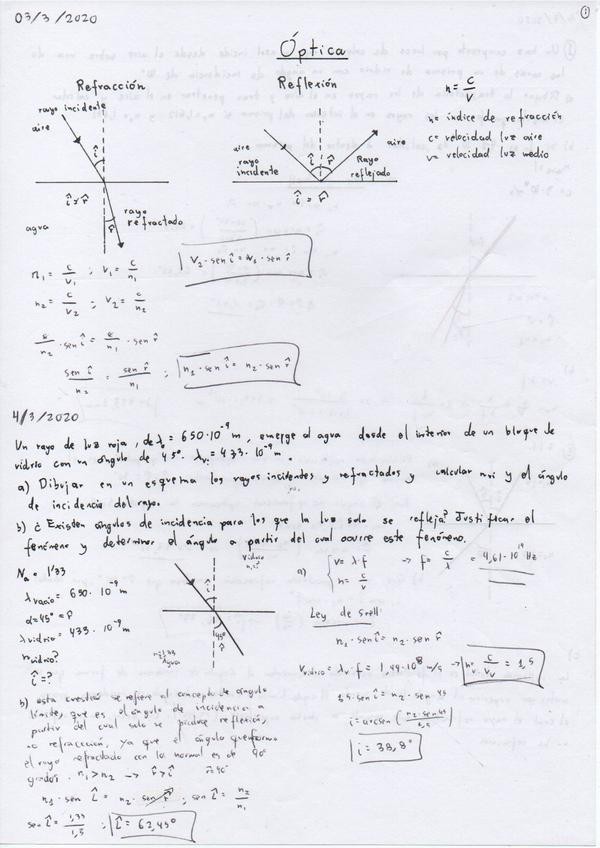 03/3/2020
1
Óptica
Refracción
rayo incidente
aire
î
î ≠ r̂
r̂
rayo
refractado
agua
Reflexión
aire
rayo
incidente
î
r̂
Rayo
reflejado
aire
î = r̂
n = c/v
n = índice de refracción
c = velocidad luz aire
v = velocidad luz medio
n₁ = c/v₁ ; v₁ = c/n₁
n₂ = c/v₂ ; v₂ = c/n₂
V₂ · sen î = v₁ · sen r̂
c/n₂ · sen î = c/n₁ · sen r̂
sen î/n₂ = sen r̂/n₁ ; n₁ · sen î = n₂ · sen r̂
4/3/2020
Un rayo de luz roja, de λ₀ = 650·10⁻⁹ m, emerge al agua desde el interior de un bloque de
vidrio con un ángulo de 45º. λv = 433·10⁻⁹ m.
a) Dibujar en un esquema los rayos incidentes y refractados y calcular nvi y el ángulo
de incidencia del rayo.
b) ¿Existen ángulos de incidencia para los que la luz solo se refleja? Justificar el
fenómeno y determinar el ángulo a partir del cual ocurre este fenómeno.
Na = 1'33
λ vacío = 650 · 10⁻⁹ m
α = 45º = r̂
λ vidrio = 433 · 10⁻⁹ m
n vidrio?
î = ?
vidrio
î
45º
r̂
agua
a) { v = λ·f → f = c/λ = 4,61·10¹⁴ Hz
n = c/v
Ley de Snell
n₁ · sen î = n₂ · sen r̂
V vidrio = λv · f = 1,99·10⁸ m/s → nv = c/Vv = 1,5
1,5 · sen î = n₂ · sen 45
i = arcsen (n₂ · sen 45/1,5)
i = 38,8º
b) esta cuestión se refiere al concepto de ángulo
límite, que es el ángulo de incidencia a
partir del cual solo se produce reflexión,
no refracción, ya que el ángulo que forma
el rayo refractado con la normal es de 90
grados. n₁ > n₂ → r̂ > î r̂ = 90º
n₁ · sen L̂ = n₂ · sen r̂ ; sen L̂ = n₂/n₁
sen L̂ = 1,33/1,5 ; L̂ = 62,45º